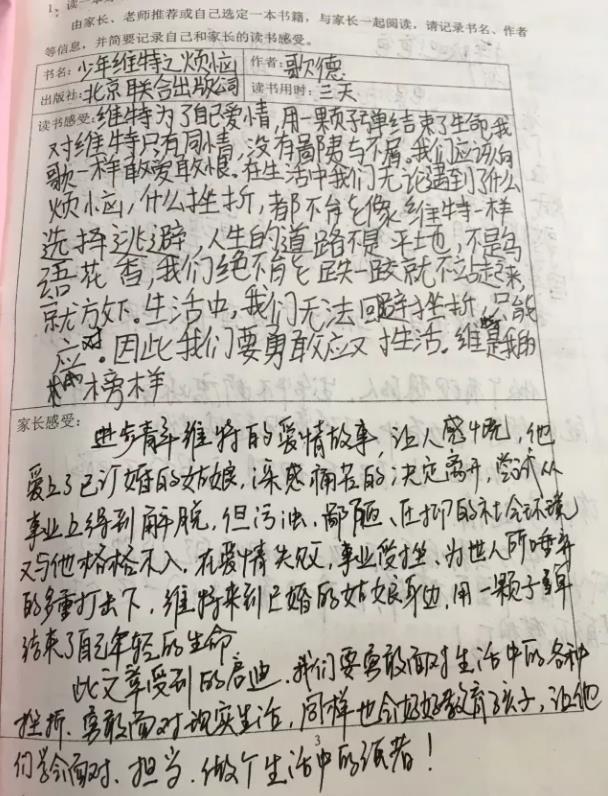 1、读一本
由家长、老师推荐或自己选定一本书籍，与家长一起阅读，请记录书名、作者
等信息，并简要记录自己和家长的读书感受。
书名：少年维特之烦恼 作者：歌德
出版社：北京联合出版公司 读书用时：三天
读书感受：维特为了自己爱情，用一颗子弹结束了生命，我
对维特只有同情，没有鄙夷与不屑。我们应该向
歌一样敢爱敢恨。在生活中我们无论遇到了什么
烦恼，什么挫折，都不能像维特一样
选择逃避，人生的道路不是平地，不是鸟
语花香，我们绝不能跌一跤就不站起来，
就放下。生活中，我们无法回避挫折，只能
应对。因此我们要勇敢应对生活。维特是我的
榜样
家长感受：
进步青年维特的爱情故事，让人感慨，他
爱上了已订婚的姑娘，深感痛苦的决定离开，尝试从
事业上得到解脱，但污浊、鄙陋、压抑的社会环境
又与他格格不入，在爱情失败，事业受挫、为世人所唾弃
的多重打击下，维特来到已婚的姑娘身边，用一颗子弹
结束了自己年轻的生命
此文章受到的启迪，我们要勇敢面对生活中的各种
挫折、勇敢面对现实生活，同样也会好好教育孩子，让他
们学会面对、担当、做个生活中的强者！
3